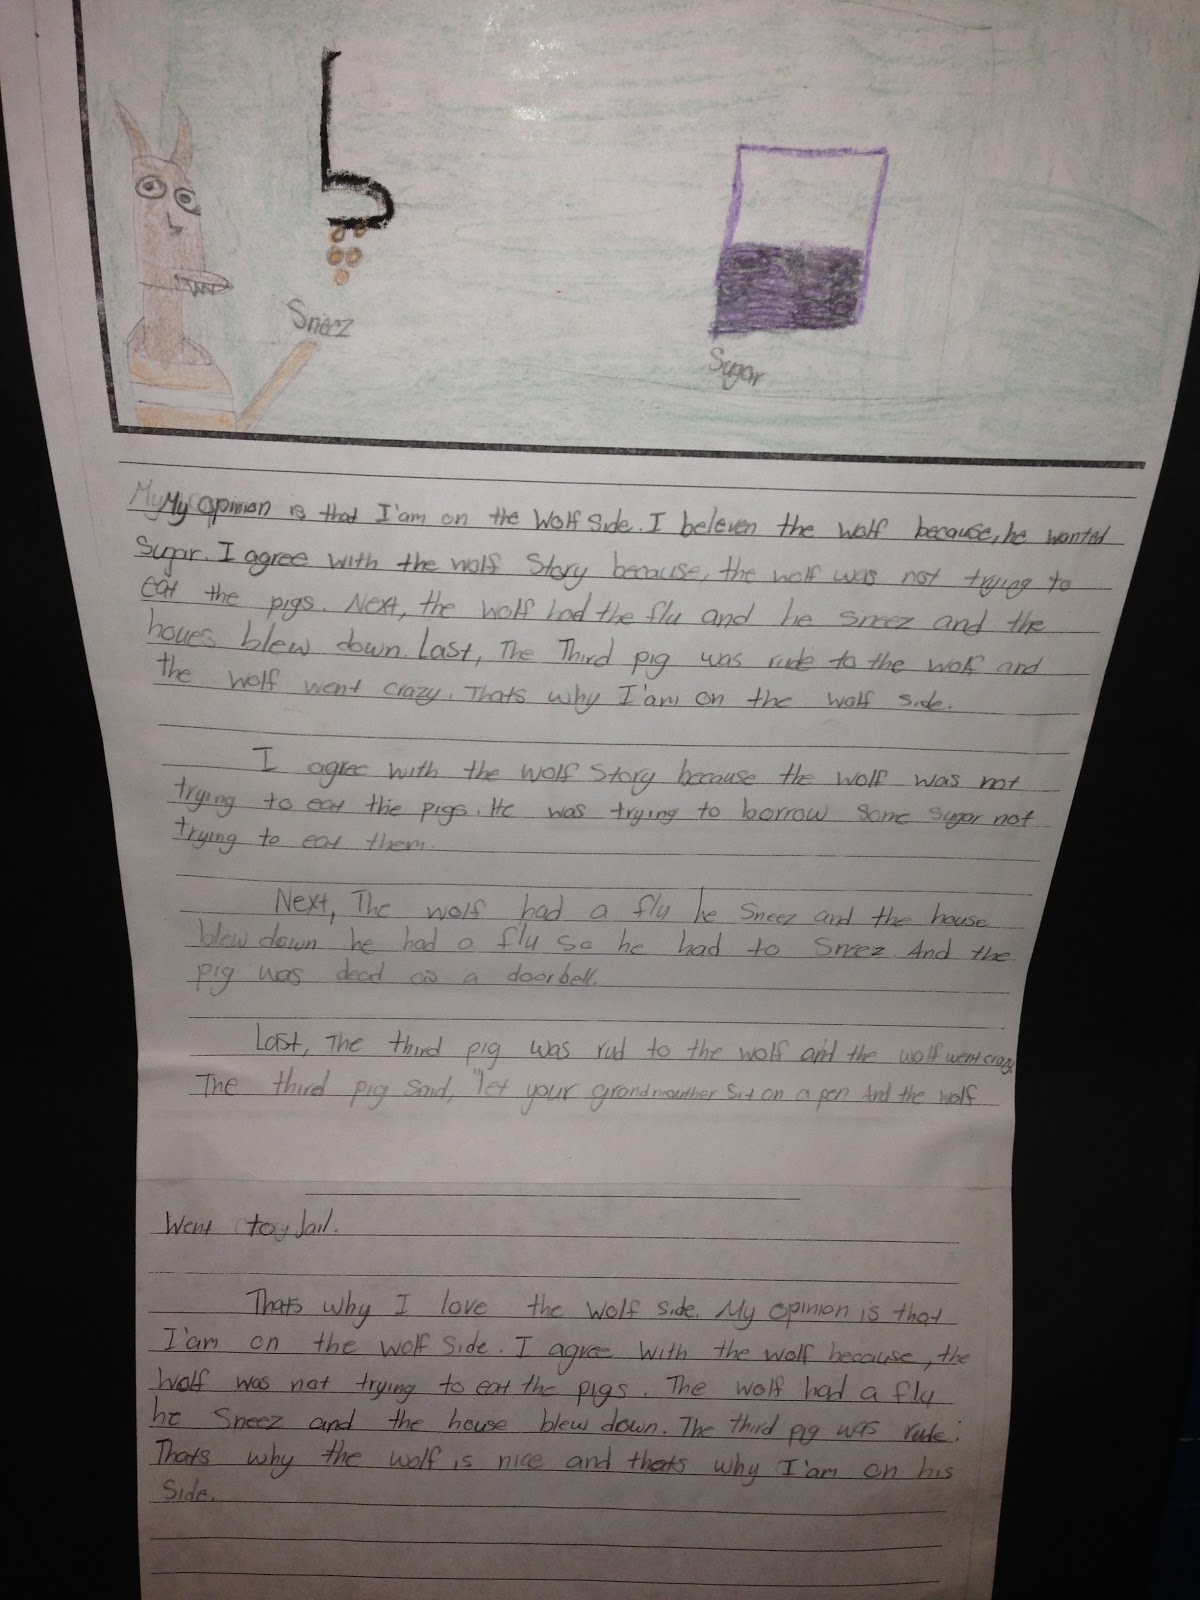 Sneez
Sugar
My My opinion is that I'am on the Wolf Side. I beleven the wolf because, he wanted
Sugar. I agree with the wolf Story because, the wolf was not trying to
eat the pigs. Next, the wolf had the flu and he sneez and the
houes blew down. Last, The Third pig was rude to the wolf and
the wolf went crazy. Thats why I'am on the wolf side.
I agree with the wolf Story because the wolf was not
trying to eat the pigs. He was trying to borrow some sugar not
trying to eat them.
Next, The wolf had a flu he Sneez and the house
blew down he had a flu so he had to Sneez. And the
pig was dead as a doorbell.
Last, The third pig was rud to the wolf and the wolf went crazy.
The third pig Said, "let your grandmouther Sit on a pen And the wolf
Went to Jail.
Thats why I love the wolf side. My opinion is that
I'am on the wolf Side. I agree With the wolf because, the
Wolf was not trying to eat the pigs. The wolf had a flu
he Sneez and the house blew down. The third pig was rude.
Thats why the wolf is nice and thats why I'am on his
Side.